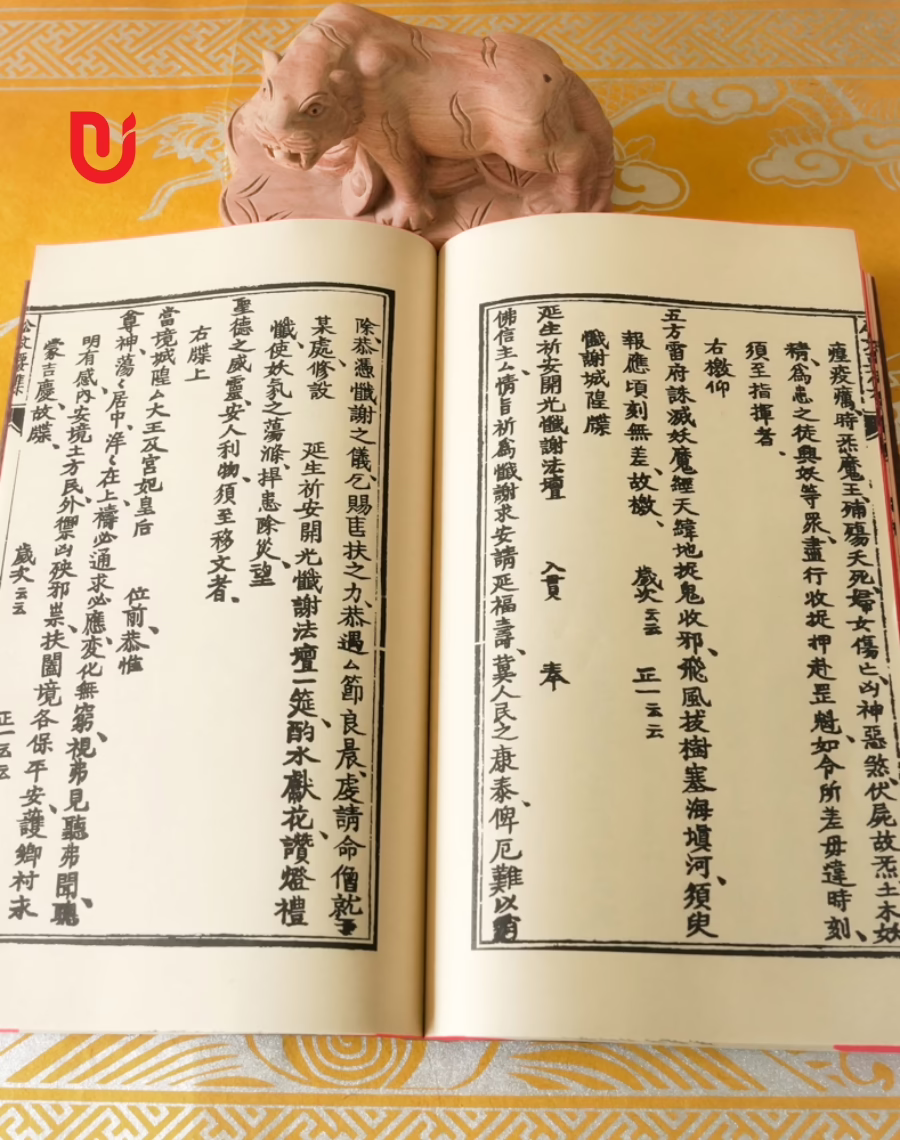 疫癘時炁魔王殤夭死、婦女傷亡凶神惡煞、伏屍故炁土木妖
精、為患之徒興妖等眾、盡行收捉押赴罡魁、如令所差毋違時刻、
須至指揮者、
右檄仰
五方雷府誅滅妖魔經天緯地捉鬼收邪、飛風拔樹塞海塡河、須臾
報應頃刻無差、故檄、 歲次云云 正一云云
懺謝城隍牒
延生祈安開光懺謝法壇 入貫 奉
佛信主厶、情旨祈爲懺謝求安請延福壽、冀人民之康泰、俾厄難以
除、恭憑懺謝之儀、乞賜匡扶之力、恭遇厶節良晨、虔請命僧就于
某處修設 延生祈安開光懺謝法壇一筵、酌水獻花、讚燈禮
懺、使妖氛之蕩滌、捍患除災、望
聖德之威靈、安人利物、須至移文者、
右牒上
當境城隍厶大王及宮妃皇后 位前、恭惟
尊神、蕩蕩居中、洋洋在上、禱必通求必應、変化無窮、視弗見聽弗聞、聰
明有感、內安境土方民、外禦凶殃邪祟、扶闔境各保平安、護鄉村永
蒙吉慶、故牒、 歲次云云 正一云云